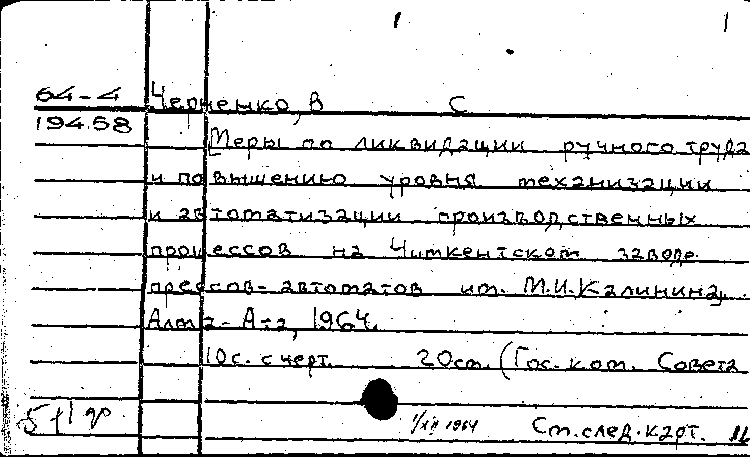 64-4 Черненко, В С
194.58
Меры по ликвидации ручного труда
и повышению уровня механизации
и автоматизации производственных
процессов на Чимкентском заводе
прессов-автоматов им. М.И.Калинина,
Алма-Ата, 1964.
10с. с черт. 20см. (Гос. ком. Совета
1/XII 1964 См.след.карт.